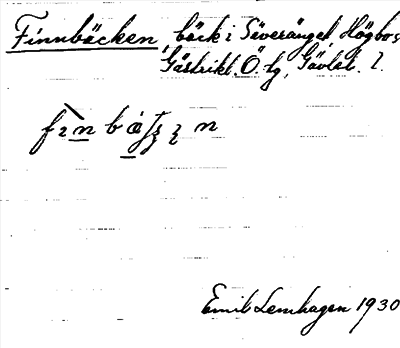 Finnbäcken, bäck i Säveränget, Högbo s,
Gästrikl. Ö. tg, Gävleb. l.
Emil Lemhagen 1930